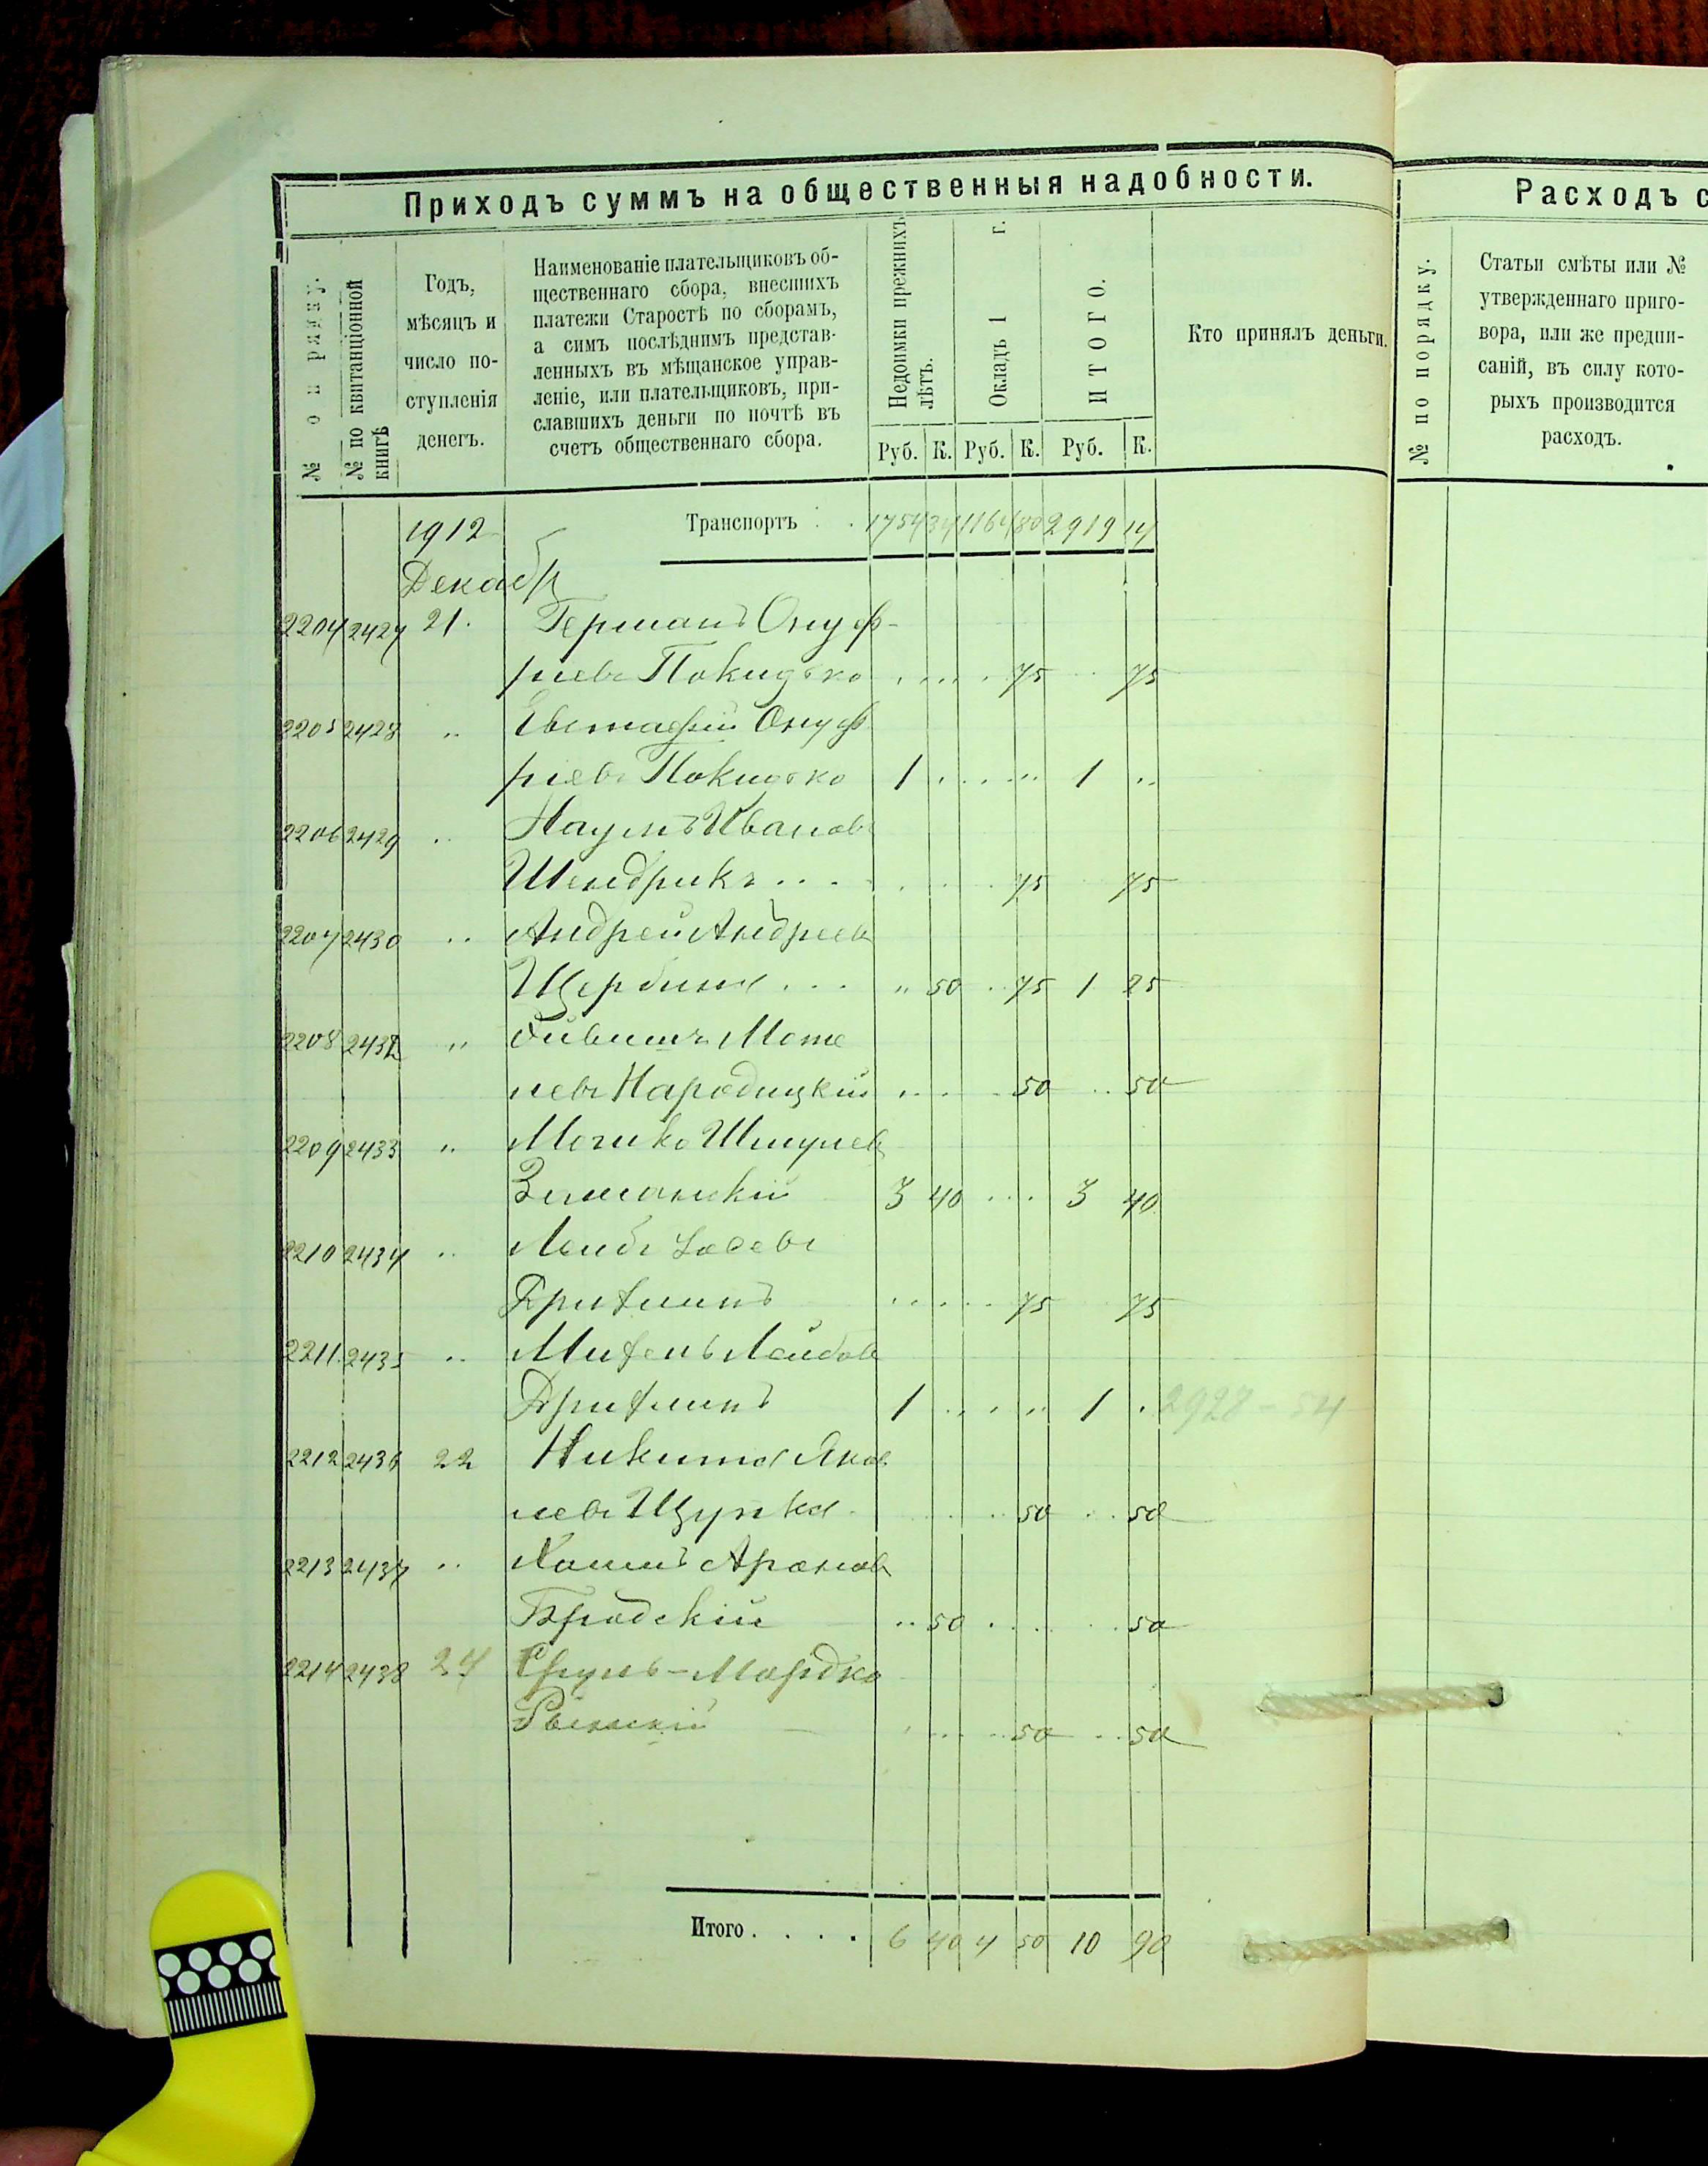 Приходъ суммъ на общественныя надобности.
Расходъ с
№ по квитанціонной книгѣ
Годъ, мѣсяцъ и число поступленія денегъ.
Наименованіе плательщиковъ об-
щественнаго сбора, внесшихъ
платежи Старостѣ по сборамъ,
а симъ послѣднимъ представ-
ленныхъ въ мѣщанское управ-
леніе, или плательщиковъ, при-
славшихъ деньги по почтѣ въ
счетъ общественнаго сбора.
Недоимки прежнихъ лѣтъ.
Окладъ 1 г.
ИТОГО.
Руб. К. Руб. К. Руб. К.
Кто принялъ деньги.
№ по порядку.
Статьи смѣты или №
утвержденнаго приго-
вора, или же предпи-
саній, въ силу кото-
рыхъ производится
расходъ.
1912 Транспортъ . . 1754 34 1164 80 2919 14
Декабр
2204 2427 21. Германъ Онуф-
ріевъ Покидько 75 75
2205 2428 " Евстафій Онуф
ріевъ Покидько 1 1 "
2206 2429 " Наумъ Ивановъ
Шендрикъ . . . 75 75
2207 2430 " Андрей Андреев
Щербина . . . " 50 75 1 25
2208 " Моте
левъ Народицкій 50 50
2209 2433 " Мошко Шмулев
3 40 3 40
2210 2434 " Лейбъ Іосевъ
75 75
2211 2435 " Лейбов
1 1 2928 - 54
2212 2436 22 Никита Яков
левъ Щупка 50 50
2213 2437 " Хаимъ Аронов
Бродскій " 50 50
2214 2438 24 Сруль-Мордко
50 50
Итого . . . . 6 40 4 50 10 90